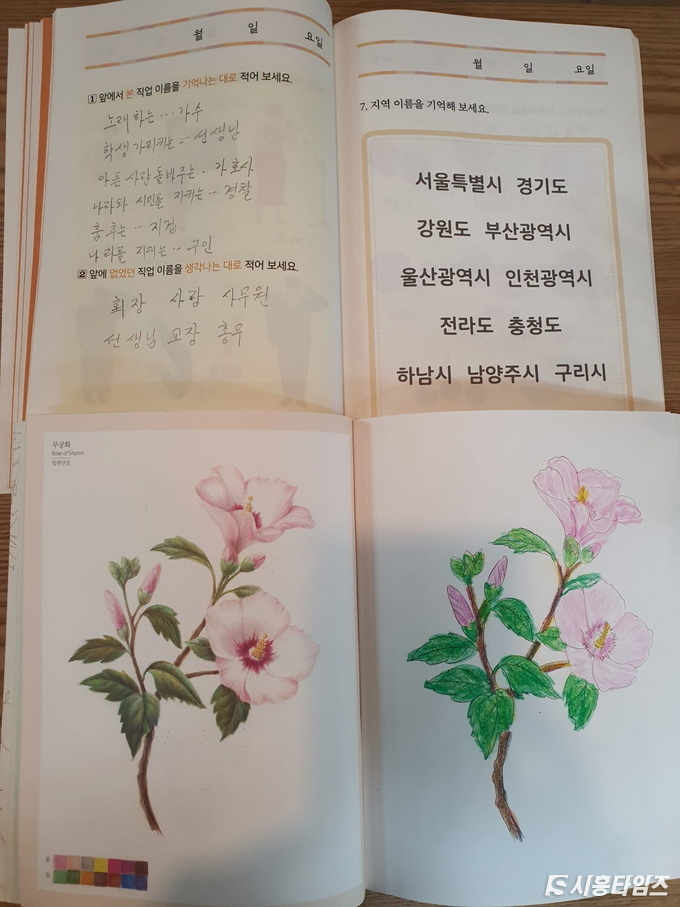 월 일 요일
1 앞에서 본 직업 이름을 기억나는 대로 적어 보세요.
노래하는 … 가수
학생 가리키는 … 선생님
아픈 사람 돌봐주는 … 가호사
나라와 시민들 지키는 … 경찰
춤추는 …
나라를 지키는 … 구인
2 앞에 없었던 직업 이름을 생각나는 대로 적어 보세요.
회장 사장 사무원
선생님 교장 총무
월 일 요일
7. 지역 이름을 기억해 보세요.
서울특별시 경기도
강원도 부산광역시
울산광역시 인천광역시
전라도 충청도
하남시 남양주시 구리시
무궁화
Rose of Sharon
일편단심
시흥타임즈